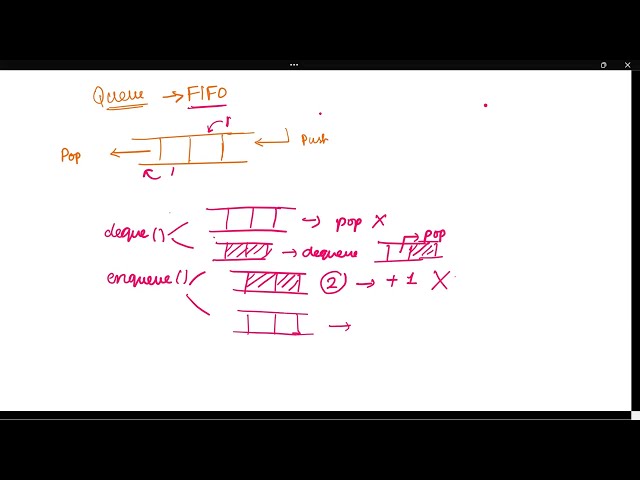 Queue → FIFO
Pop
Push
deque() → pop X
→ dequeue → pop
enqueue() ② → +1 X
→